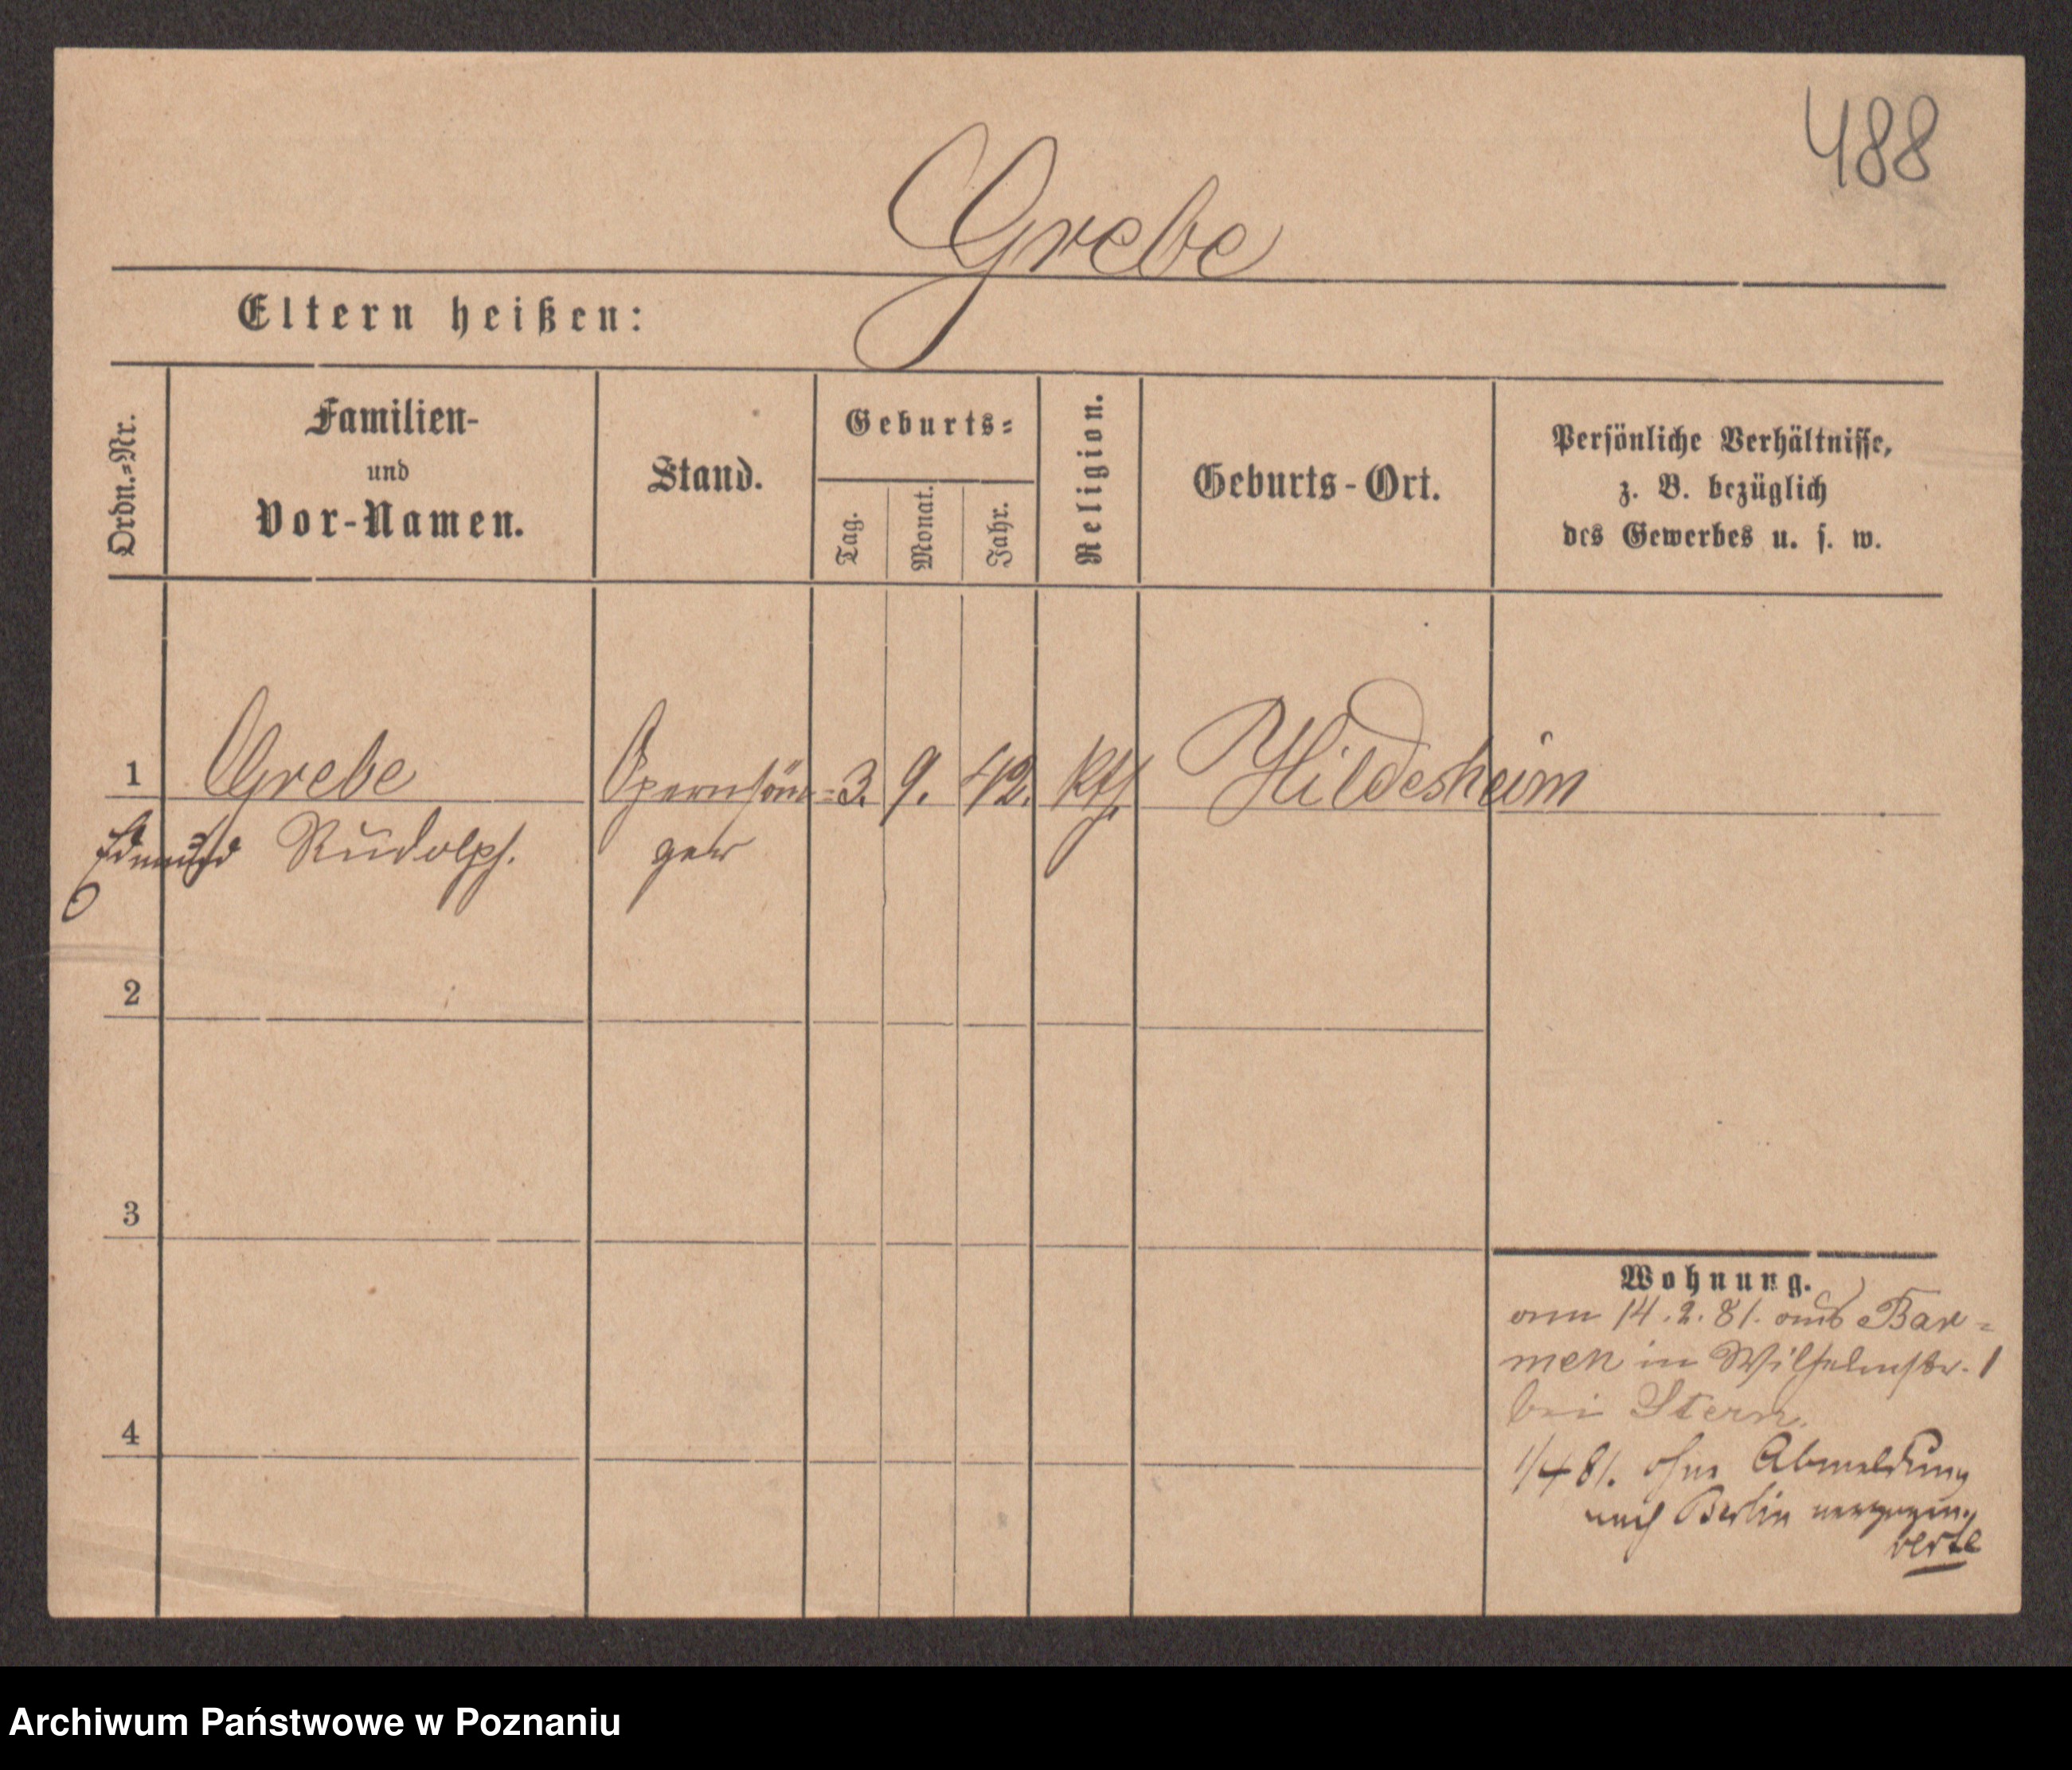 488
Grebe
Eltern heißen:
Ordn.=Nr.
Familien-
und
Vor-Namen.
Stand.
Geburts=
Tag.
Monat.
Jahr.
Religion.
Geburts-Ort.
Persönliche Verhältnisse,
z. B. bezüglich
des Gewerbes u. s. w.
1 Grebe Opernsän= 3. 9. 42. kth Hildesheim
Edmund Rudolph. ger
2
3
4
Wohnung.
am 14.2.81. aus Bar=
men in Wilhelmstr. 1
bei Stern.
1/4 81. ohne Abmeldung
nach Berlin verzogen.
verte
Archiwum Państwowe w Poznaniu